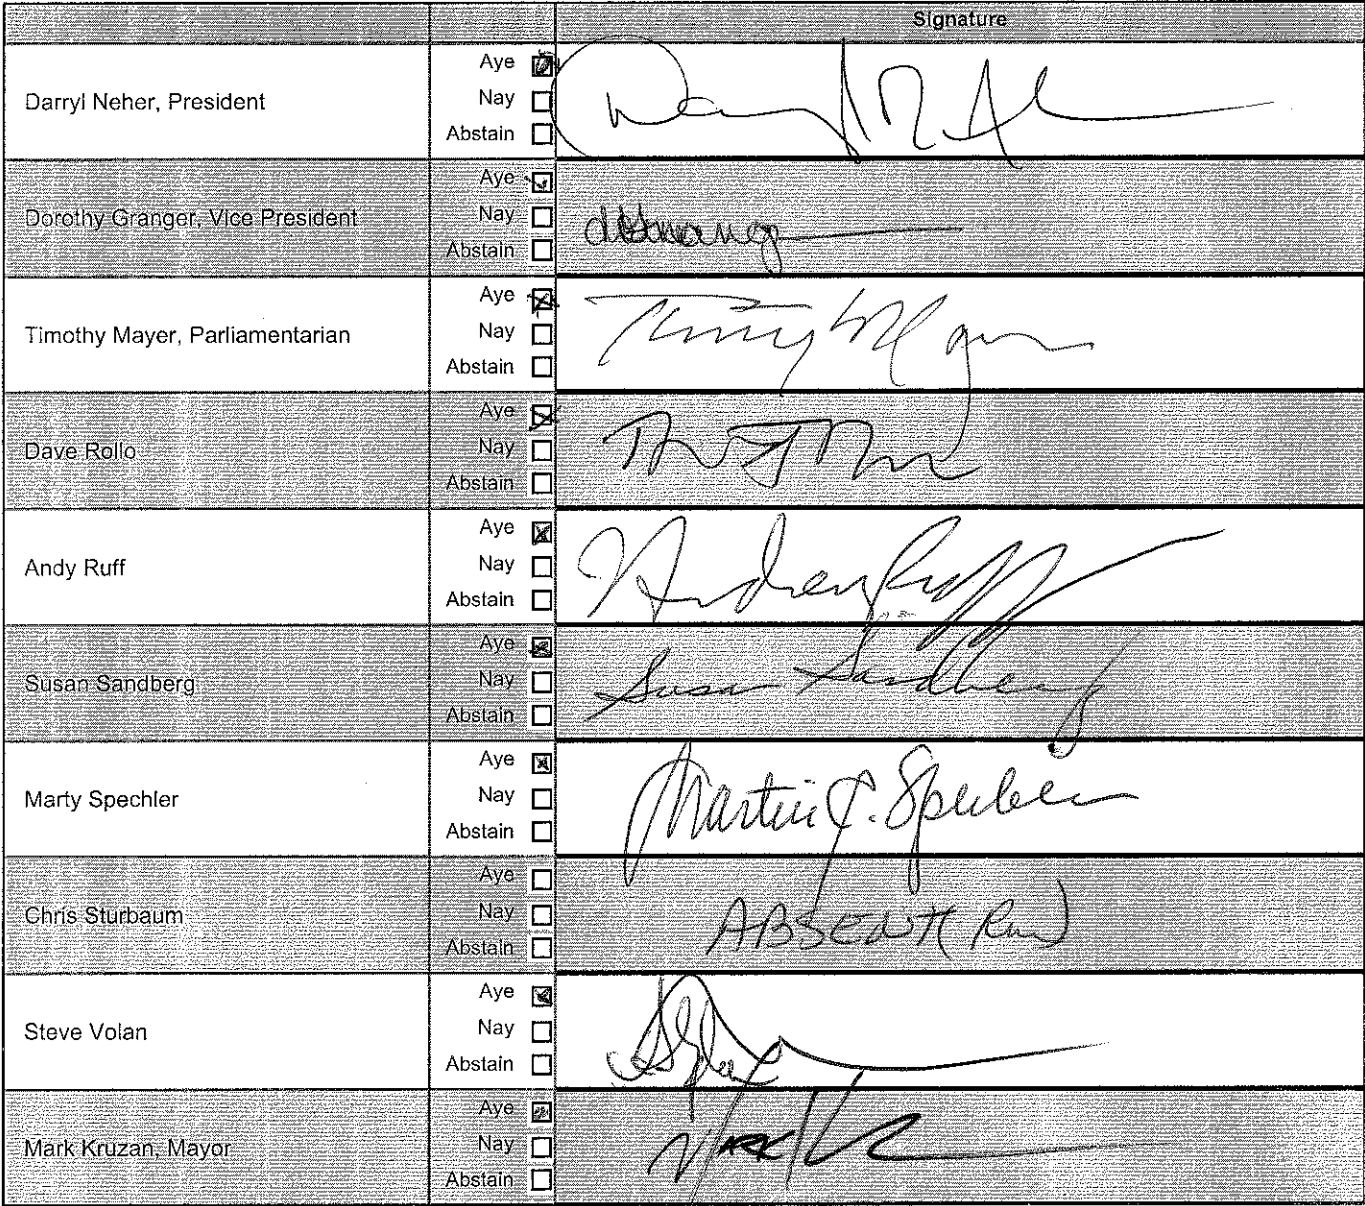 Signature
Darryl Neher, President
Aye
Nay
Abstain
Dorothy Granger, Vice President
Aye
Nay
Abstain
Timothy Mayer, Parliamentarian
Aye
Nay
Abstain
Dave Rollo
Aye
Nay
Abstain
Andy Ruff
Aye
Nay
Abstain
Andrew Ruff
Susan Sandberg
Aye
Nay
Abstain
Susan Sandberg
Marty Spechler
Aye
Nay
Abstain
Martin C. Spechler
Chris Sturbaum
Aye
Nay
Abstain
ABSENT
Steve Volan
Aye
Nay
Abstain
Mark Kruzan, Mayor
Aye
Nay
Abstain
Mark